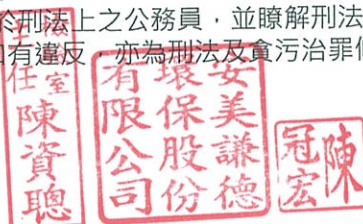 於刑法上之公務員，並瞭解刑法
有違反，亦為刑法及貪污治罪
室
主任
陳資聰
安美謙德
環保股份
有限公司
陳
冠宏